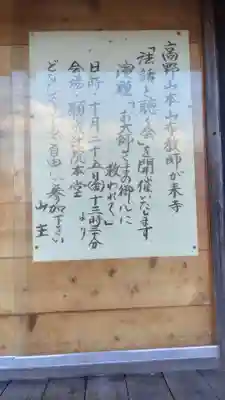 高野山本山布教師が来寺
「法話を聴く会」を開催いたします
演題「お大師さまの御心に
救われて」
日時・十月二十五日(金)十三時三十分
より
会場・本堂
どなたでも自由に参加下さい
山主